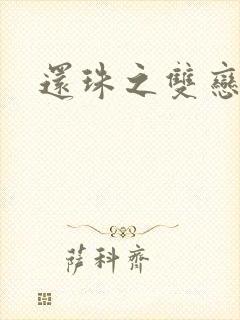 還珠之雙戀
薩科齊